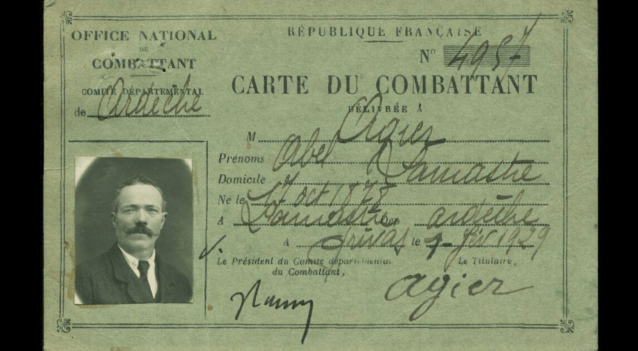 OFFICE NATIONAL
DU
COMBATTANT
COMITÉ DÉPARTEMENTAL
de Ardèche
RÉPUBLIQUE FRANÇAISE
N° 4957
CARTE DU COMBATTANT
DÉLIVRÉE À
M Agier
Prénoms Abel
Domicile Lamastre
Né le 7 oct 1878
à Lamastre, ardèche
A Privas le 7 1929
Le Président du Comité départemental
du Combattant,
Le Titulaire,
agier